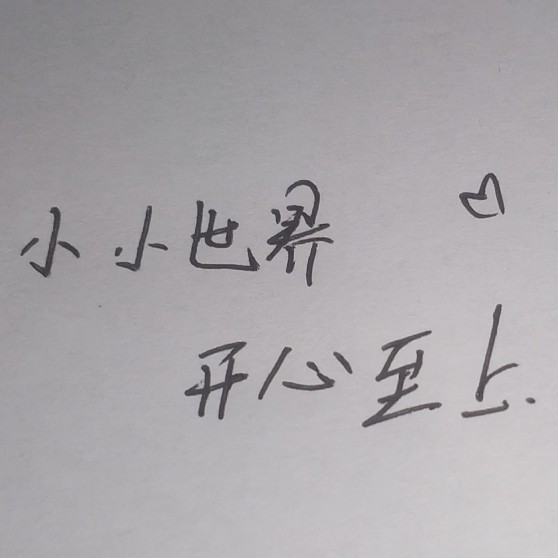 小小世界♡
开心至上.